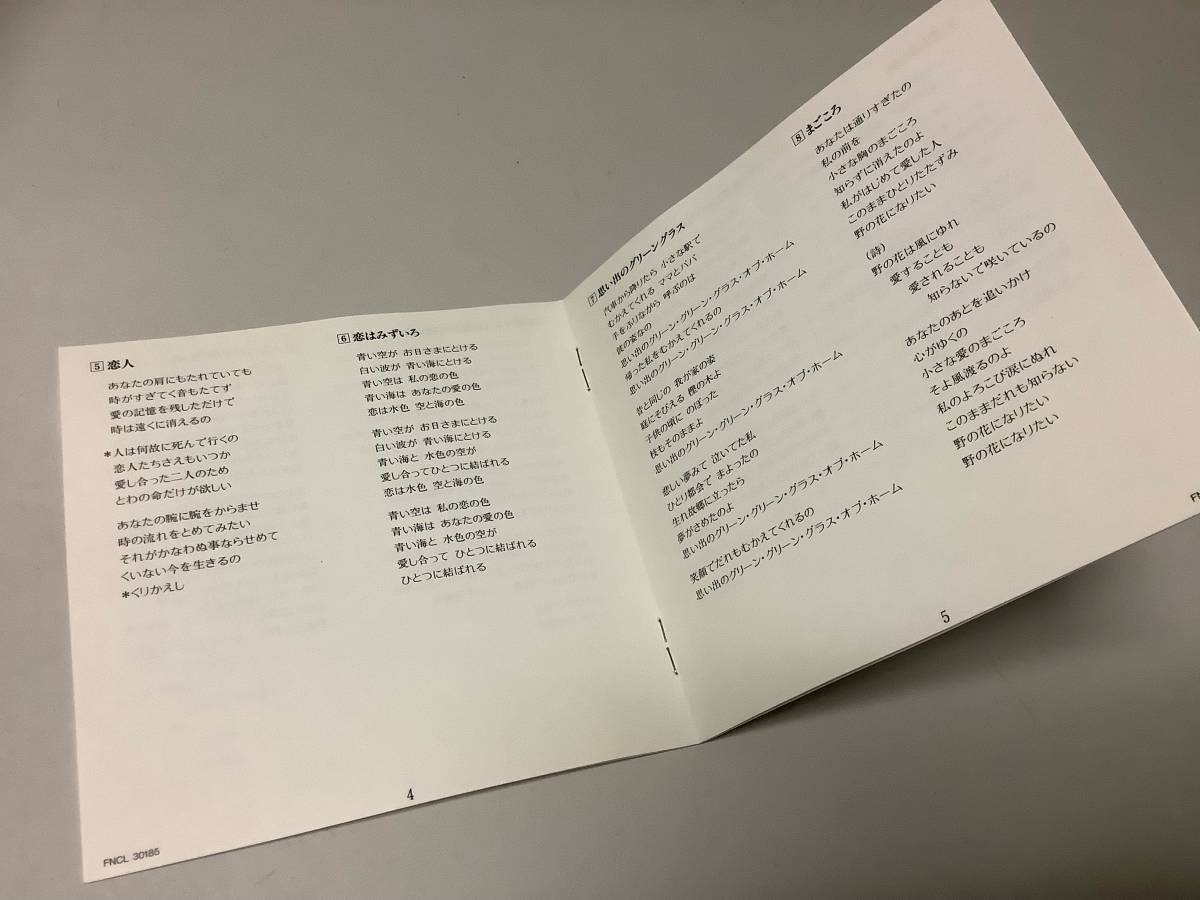 5 恋人
あなたの肩にもたれていても
時がすぎてく音もたてず
愛の記憶を残しただけで
時は遠くに消えるの
*人は何故に死んで行くの
恋人たちさえもいつか
愛し合った二人のため
とわの命だけが欲しい
あなたの腕に腕をからませ
時の流れをとめてみたい
それがかなわぬ事ならせめて
くいない今を生きるの
*くりかえし
6 恋はみずいろ
青い空が お日さまにとける
白い波が 青い海にとける
青い空は 私の恋の色
青い海は あなたの愛の色
恋は水色 空と海の色
青い空が お日さまにとける
白い波が 青い海にとける
青い海と 水色の空が
愛し合ってひとつに結ばれる
恋は水色 空と海の色
青い空は 私の恋の色
青い海は あなたの愛の色
青い海と 水色の空が
愛し合って ひとつに結ばれる
ひとつに結ばれる
4
FNCL 30185
7 思い出のグリーングラス
汽車から降りたら 小さな駅で
むかえてくれる ママとパパ
手をふりながら 呼ぶのは
彼の姿なの
思い出のグリーン・グリーン・グラス・オブ・ホーム
帰った私をむかえてくれるの
思い出のグリーン・グリーン・グラス・オブ・ホーム
昔と同じの 我が家の姿
庭にそびえる 樫の木よ
子供の頃に のぼった
枝もそのままよ
思い出のグリーン・グリーン・グラス・オブ・ホーム
悲しい夢みて 泣いてた私
ひとり都会で まよったの
生れ故郷に立ったら
夢がさめたのよ
思い出のグリーン・グリーン・グラス・オブ・ホーム
笑顔でだれもむかえてくれるの
思い出のグリーン・グリーン・グラス・オブ・ホーム
8 まごころ
あなたは通りすぎたの
私の前を
小さな胸のまごころ
知らずに消えたのよ
私がはじめて愛した人
このままひとりたたずみ
野の花になりたい
(詩)
野の花は風にゆれ
愛することも
愛されることも
知らないで咲いているの
あなたのあとを追いかけ
心がゆくの
小さな愛のまごころ
そよ風渡るのよ
私のよろこび涙にぬれ
このままだれも知らない
野の花になりたい
野の花になりたい
5